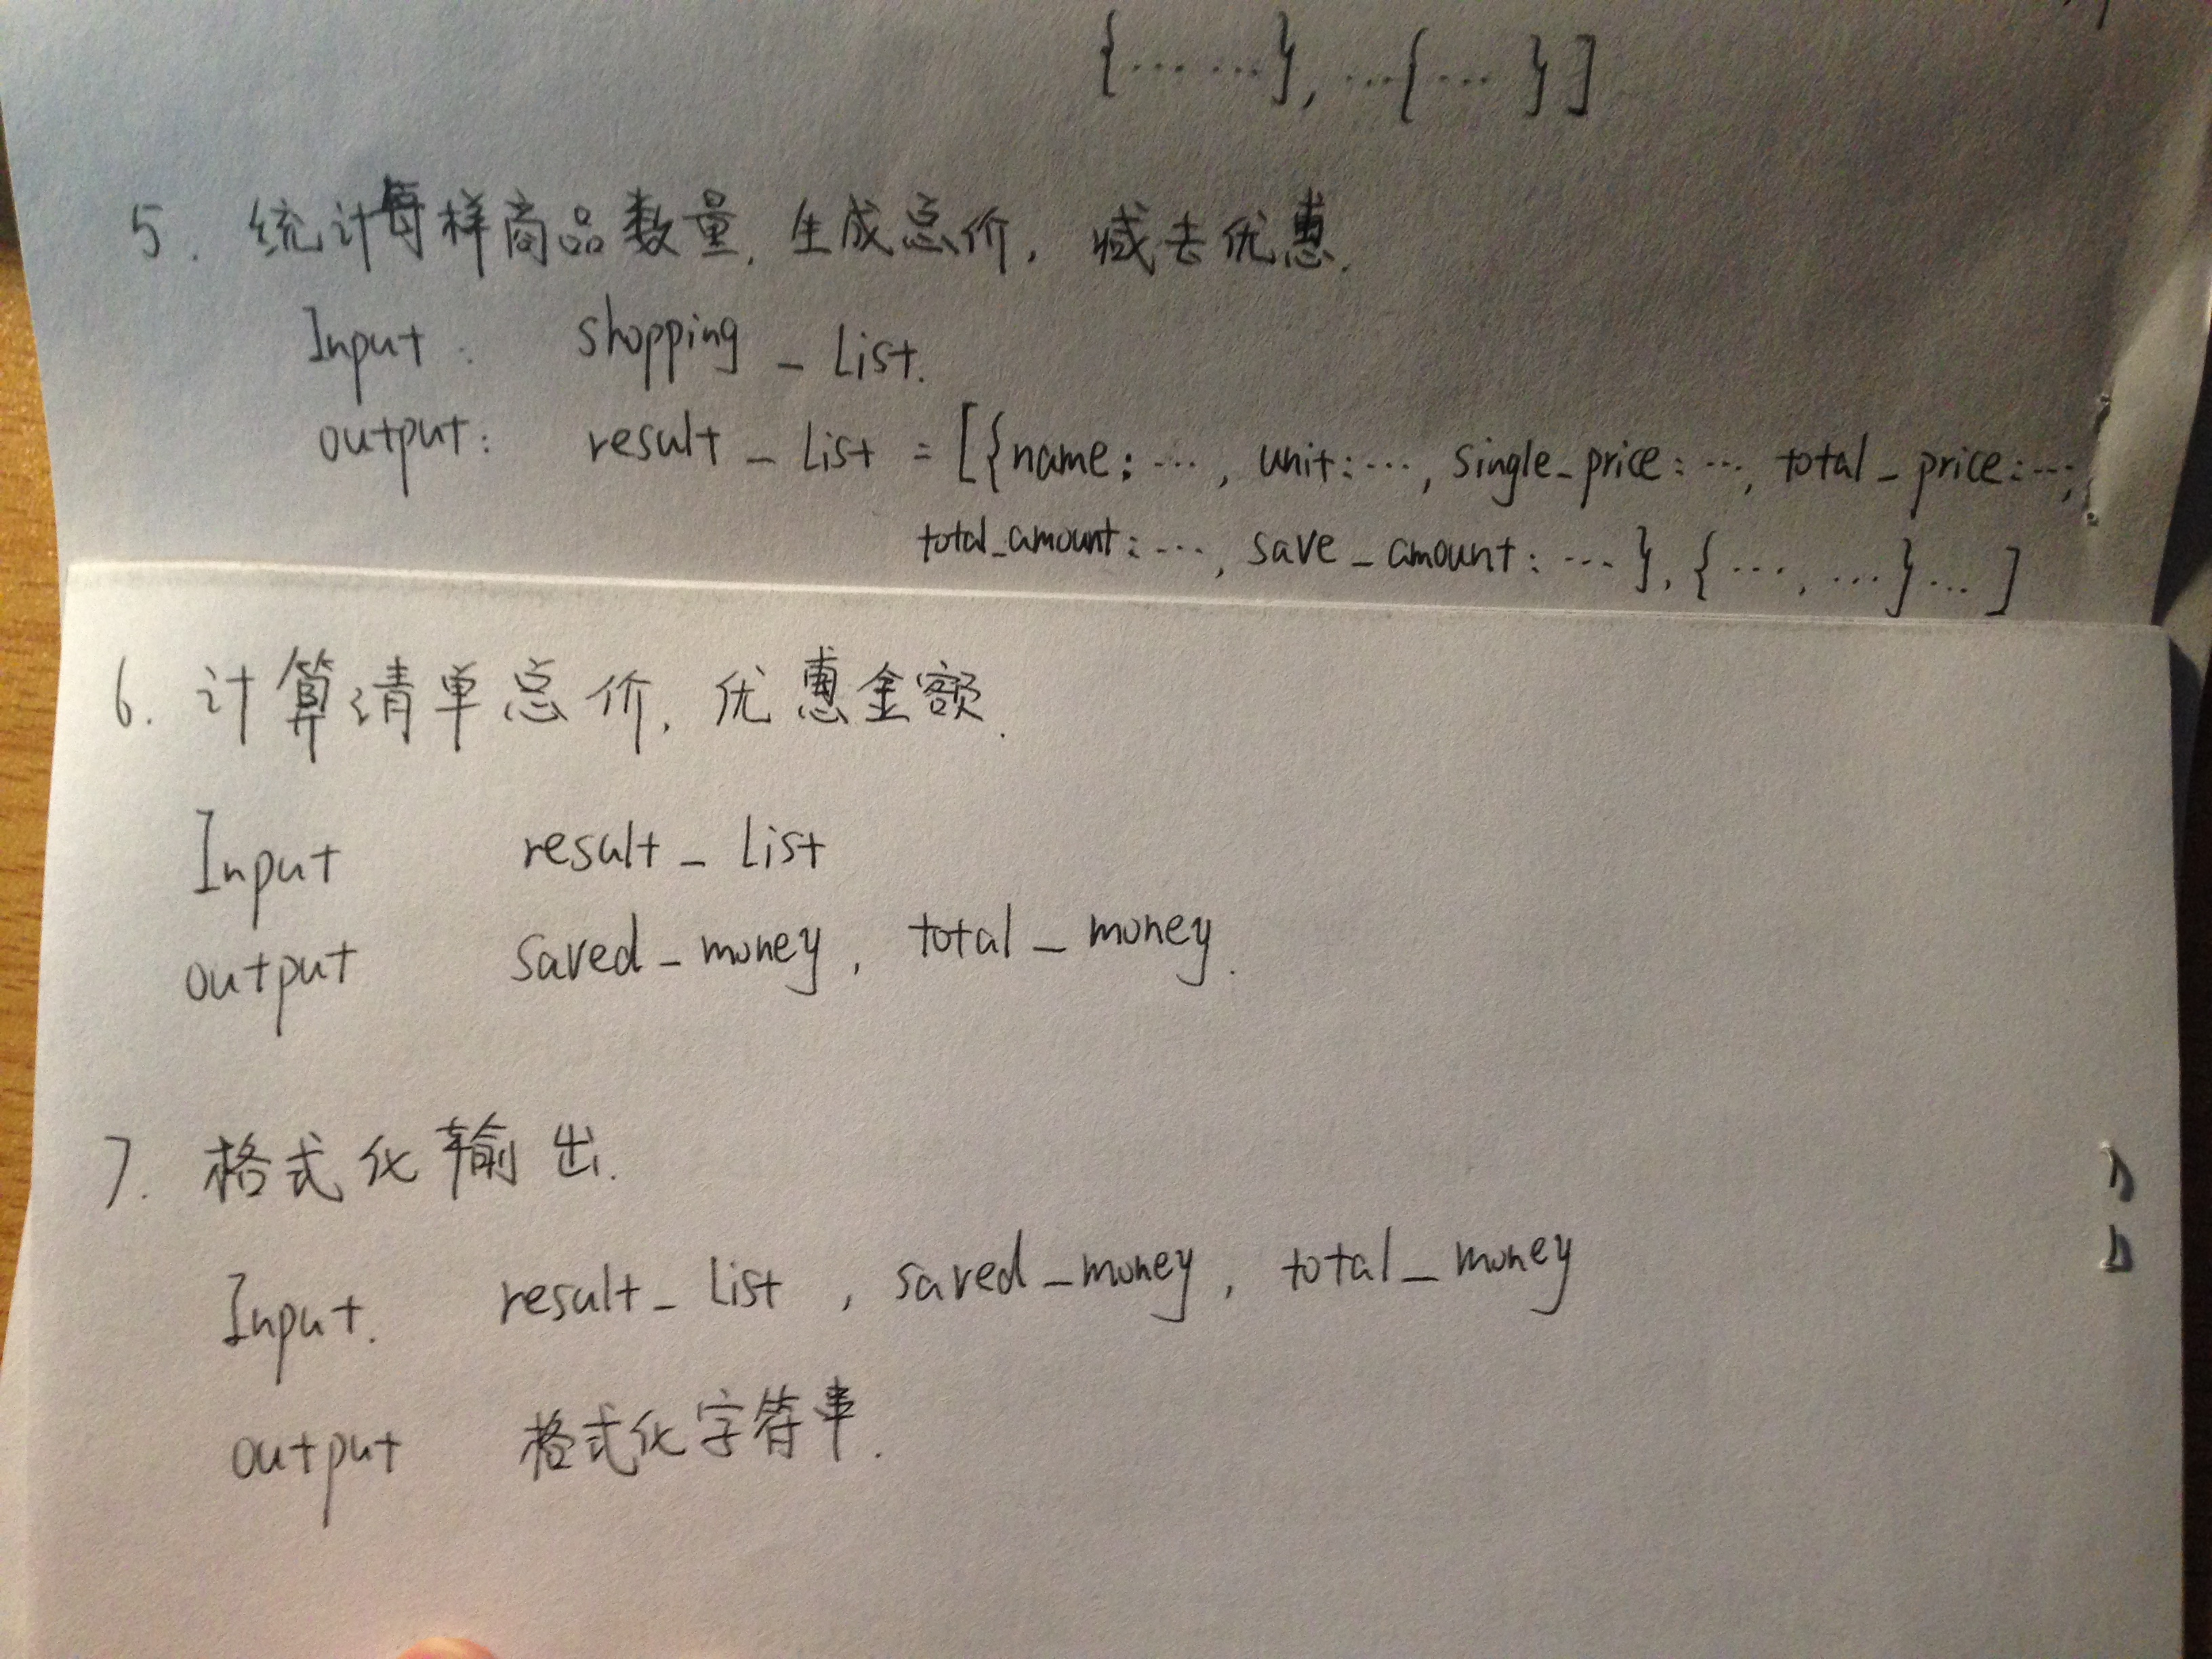 {…… …}, …{… }]
5. 统计每样商品数量, 生成总价, 减去优惠.
Input: shopping_list.
output: result_list = [{name: …, unit: …, single_price: …, total_price: …,
total_amount: …, save_amount: … }, {…, …} … ]
6. 计算清单总价, 优惠金额.
Input result_list
output saved_money, total_money.
7. 格式化输出.
Input. result_list, saved_money, total_money
output 格式化字符串.